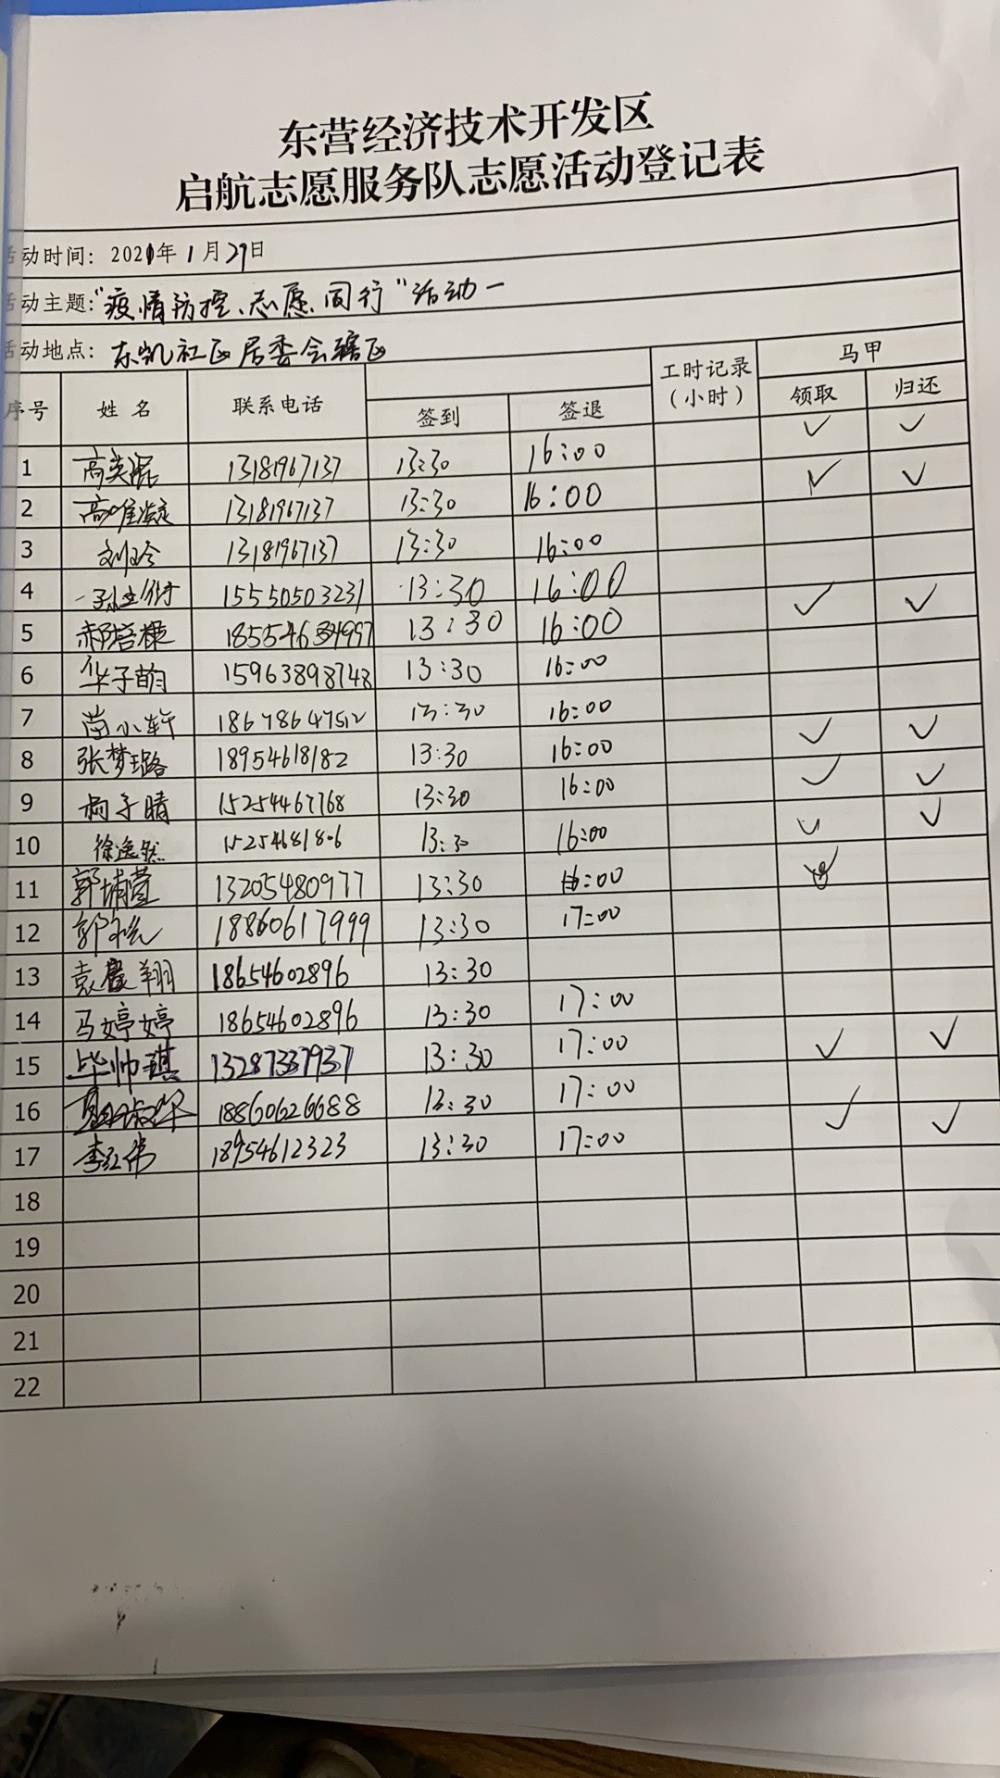 东营经济技术开发区
启航志愿服务队志愿活动登记表
活动时间：2021年1月29日
活动主题："疫情防控、志愿同行"活动一
活动地点：东凯社区居委会辖区
序号 姓名 联系电话 签到 签退 工时记录（小时） 马甲 领取 归还
1 13181967137 13:30 16:00 ✓ ✓
2 高唯凝 13181967137 13:30 16:00 ✓ ✓
3 刘玲 13181967137 13:30 16:00
4 15550503231 13:30 16:00
5 13:30 16:00 ✓ ✓
6 华子萌 15963898748 13:30 16:00
7 苗小轩 18678647512 13:30 16:00
8 张梦璐 18954618182 13:30 16:00 ✓ ✓
9 柯子晴 15254467768 13:30 16:00 ✓ ✓
10 徐逸然 13:30 16:00 ✓ ✓
11 郭埔萱 13205480977 13:30 16:00
12 18860617999 13:30 17:00
13 袁晨翔 18654602896 13:30
14 马婷婷 18654602896 13:30 17:00
15 毕帅琪 13287337937 13:30 17:00 ✓ ✓
16 18860626688 13:30 17:00
17 李红伟 18954612323 13:30 17:00 ✓ ✓
18
19
20
21
22